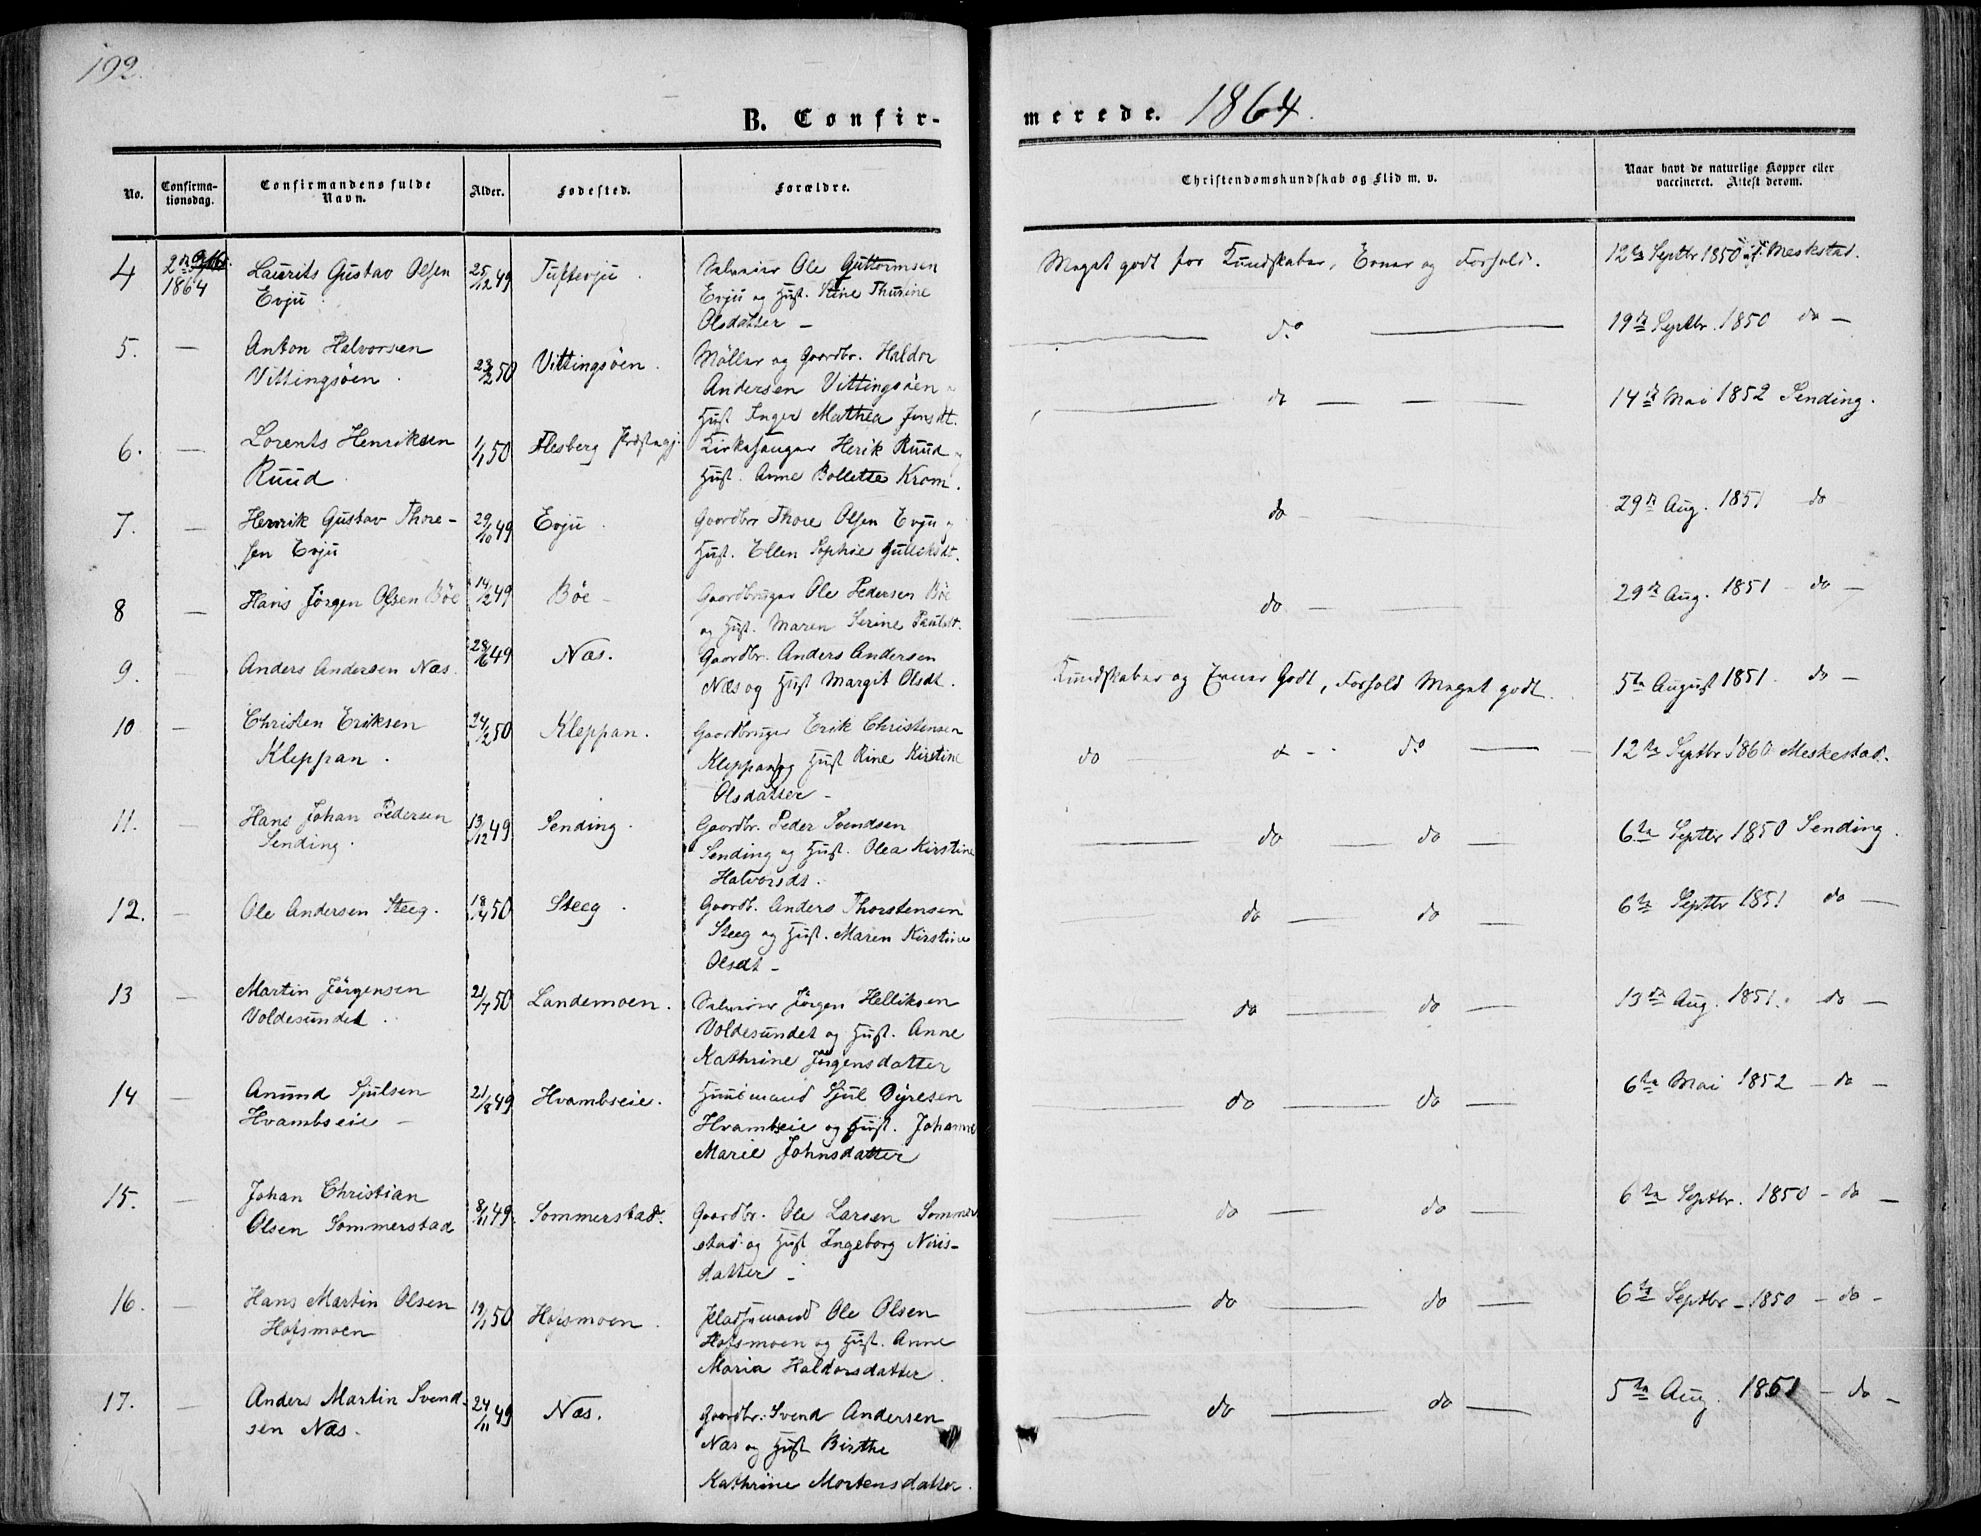 192.
B. Confir-
merede. 1864.
No.
Confirma-
tionsdag.
Confirmandens fulde
Navn.
Alder.
Fødested.
Forældre.
Christendomskundskab og Flid m. v.
Naar havt de naturlige Kopper eller
vaccineret. Attest derom.
4
1864
Laurits Gustav Olsen
Evju
25/12 49
Tuftevju
Ole Guttormsen
Evju og Hust. Thurine
Olsdatter –
Meget godt for Kundskaber, Evner og Forhold.
12te Septbr 1850 af Meskestad.
5.
—
Anton Halvorsen
Vittingsöen.
23/2 50
Vittingsöen.
Möller og Gaardbr. Haldor
Andersen Vittingsöen
Hust Inger Mathea Jensdt.
— do —
19de Septbr. 1850 do —
6.
—
Lorents Henriksen
Ruud
1/1 50
Flesberg Præstegj.
Kirkesanger Herik Ruud
Hust. Anne Bollette Krom.
— do — — —
14de Mai 1852 Sending.
7.
—
Henrik Gustav Thore-
sen Evju
29/10 49
Evju.
Gaardbr Thore Olsen Evju
Hust. Ellen Sophie Gulliksdt.
do — —
29de Aug. 1851 do
8
—
Hans Jörgen Olsen Böe
14/12 49
Böe –
Gaardbruger Ole Pedersen Böe
og Hust. Maren Serine Paulsdt.
— do — —
29de Aug. 1851 – do —
9.
Anders Andersen Næs.
28/6 49
Næs.
Gaardbr. Anders Andersen
Næs og Hust Margit Olsdt.
Kundskaber og Evner Godt, Forhold Meget godt.
5te August 1851. do —
10
—
Christen Eriksen
Kleppan.
24/2 50
Kleppan.
Gaardbruger Erik Christensen
Kleppan og Hust Rine Kirstine
Olsdatter –
do — do —
12te Septbr 1860 Meskestad.
11.
—
Hans Johan Pedersen
Sending.
13/12 49
Sending.
Gaardbr. Peder Svendsen
Sending og Hust. Olea Kirstine
Halvorsdt.
— do do —
6te Septbr 1850 Sending.
12.
—
Ole Andersen Steeg.
18/4 50
Steeg.
Gaardb. Anders Thorstensen
Steeg og Hust. Maren Kirstine
Olsdt –
— do — do —
6te Septbr 1851 do —
13
—
Martin Jörgensen
Voldesundet.
21/7 50
Landemoen.
Jörgen Helliksen
Voldesundet og Hust. Anne
Kathrine Jörgensdatter
— do — do —
13de Aug. 1851. do —
14
—
Anund Sjulsen
Hvambseie –
21/8 49
Hvambseie.
Huusmand Sjul Dyresen
Hvambseie og Hust. Johanne
Marie Johnsdatter
— do — do —
6te Mai 1852 – do –
15.
—
Johan Christian
Olsen Sommerstad
8/11 49.
Sommerstad.
Gaardbr. Ole Larsen Sommer
stad og Hust Ingeborg Niris-
datter –
— do — do —
6te Septbr. 1850 – do —
16.
—
Hans Martin Olsen
Hofsmoen
19/1 50
Hofsmoen.
Pladsemand Ole Olsen
Hofsmoen og Hust. Anne
Maria Haldorsdatter.
— do — do —
6te Septbr – 1850 – do –
17.
—
Anders Martin Svend-
sen Næs.
24/11 49
Næs.
Gaardbr. Svend Andersen
Næs og Hust Birthe
Kathrine Mortensdatter.
— do — do —
5te Aug. 1851 – do –